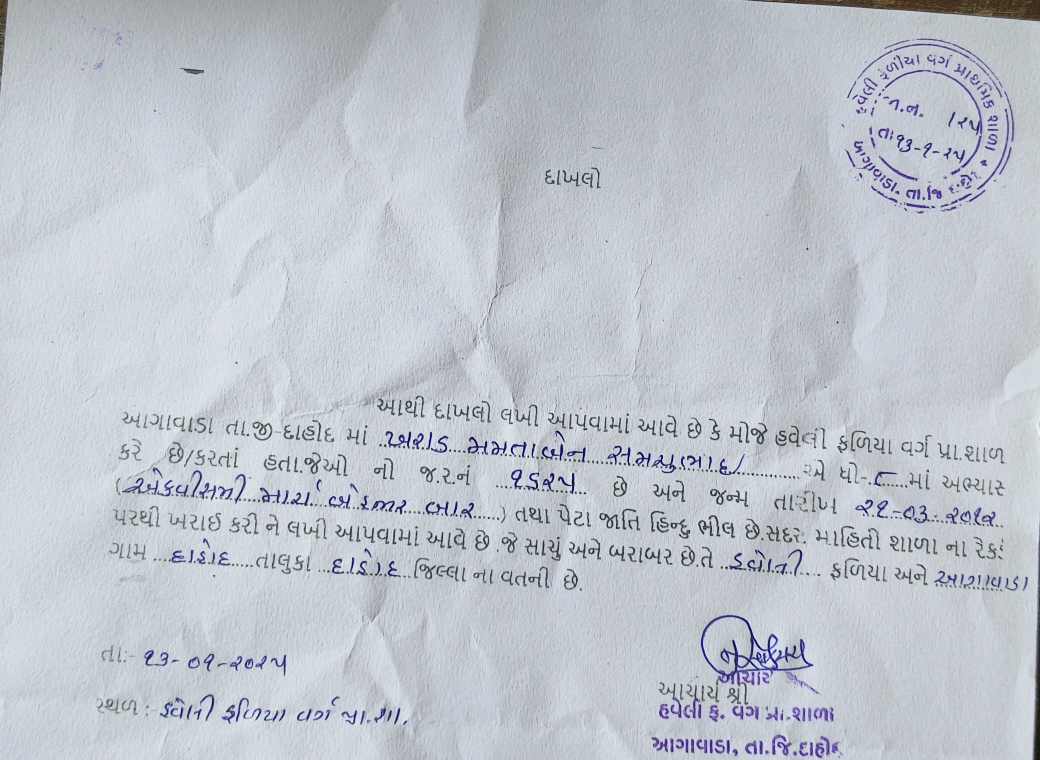 હવેલી ફળીયા વર્ગ પ્રાથમિક શાળા
જા.ન. /૨૫
તા:૧૩-૧-૨૫
આગાવાડા. તા.જિ દાહોદ
દાખલો
આથી દાખલો લખી આપવામાં આવે છે કે મોજે હવેલી ફળિયા વર્ગ પ્રા.શાળ
આગાવાડા તા.જી-દાહોદ માં ખરાડ મમતાબેન સમસુભાઇ એ ધો-૮ માં અભ્યાસ
કરે છે/કરતાં હતા.જેઓ નો જ.ર.નં ૧૬૨૫ છે અને જન્મ તારીખ ૨૧-૦૩-૨૦૧૨
(એકવીસમી માર્ચ બે હજાર બાર) તથા પેટા જાતિ હિન્દુ ભીલ છે.સદર. માહિતી શાળા ના રેકર્
પરથી ખરાઈ કરી ને લખી આપવામાં આવે છે .જે સાચું અને બરાબર છે.તે હવેલી ફળિયા અને આગાવાડા
ગામ દાહોદ તાલુકા દાહોદ જિલ્લા ના વતની છે.
તા:- ૧૩-૦૧-૨૦૨૫
સ્થળ : હવેલી ફળિયા વર્ગ પ્રા.શા.
આચાર્ય
આચાર્ય શ્રી
હવેલી ફ. વર્ગ પ્રા.શાળા
આગાવાડા, તા.જિ.દાહોદ